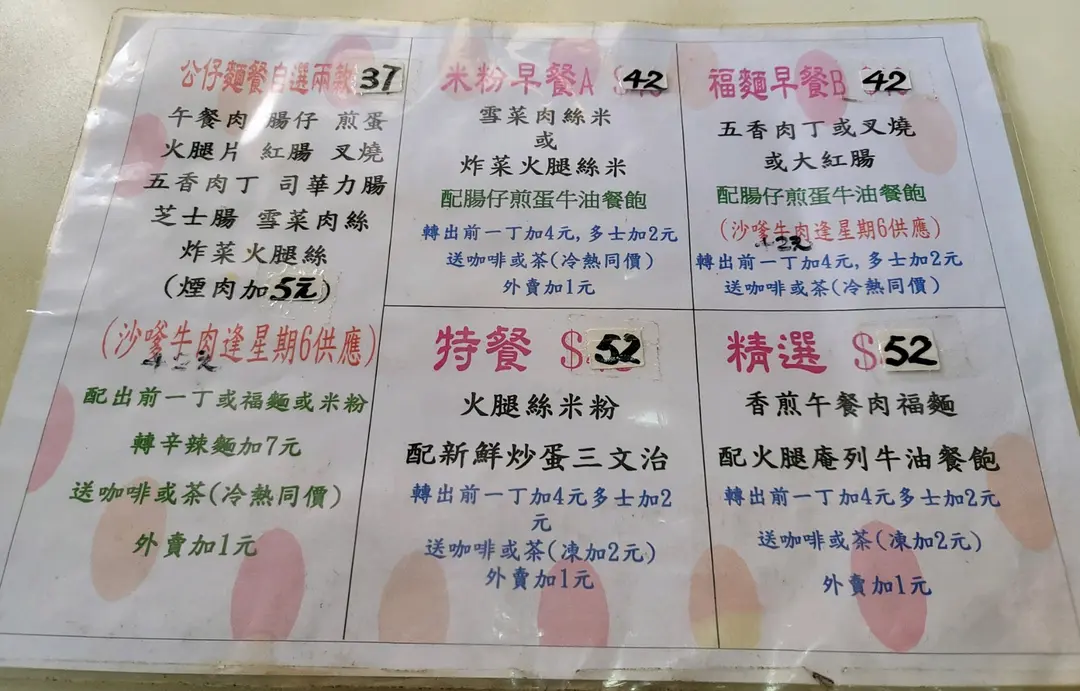 公仔麵餐自選兩款 37
午餐肉 腸仔 煎蛋
火腿片 紅腸 叉燒
五香肉丁 司華力腸
芝士腸 雪菜肉絲
炸菜火腿絲
(煙肉加5元)
(沙嗲牛肉逢星期6供應)
配出前一丁或福麵或米粉
轉辛辣麵加7元
送咖啡或茶(冷熱同價)
外賣加1元
米粉早餐A 42
雪菜肉絲米
或
炸菜火腿絲米
配腸仔煎蛋牛油餐飽
轉出前一丁加4元,多士加2元
送咖啡或茶(冷熱同價)
外賣加1元
福麵早餐B 42
五香肉丁或叉燒
或大紅腸
配腸仔煎蛋牛油餐飽
(沙嗲牛肉逢星期6供應)
+2元
轉出前一丁加4元,多士加2元
送咖啡或茶(冷熱同價)
特餐 $52
火腿絲米粉
配新鮮炒蛋三文治
轉出前一丁加4元多士加2
元
送咖啡或茶(凍加2元)
外賣加1元
精選 $52
香煎午餐肉福麵
配火腿庵列牛油餐飽
轉出前一丁加4元多士加2元
送咖啡或茶(凍加2元)
外賣加1元